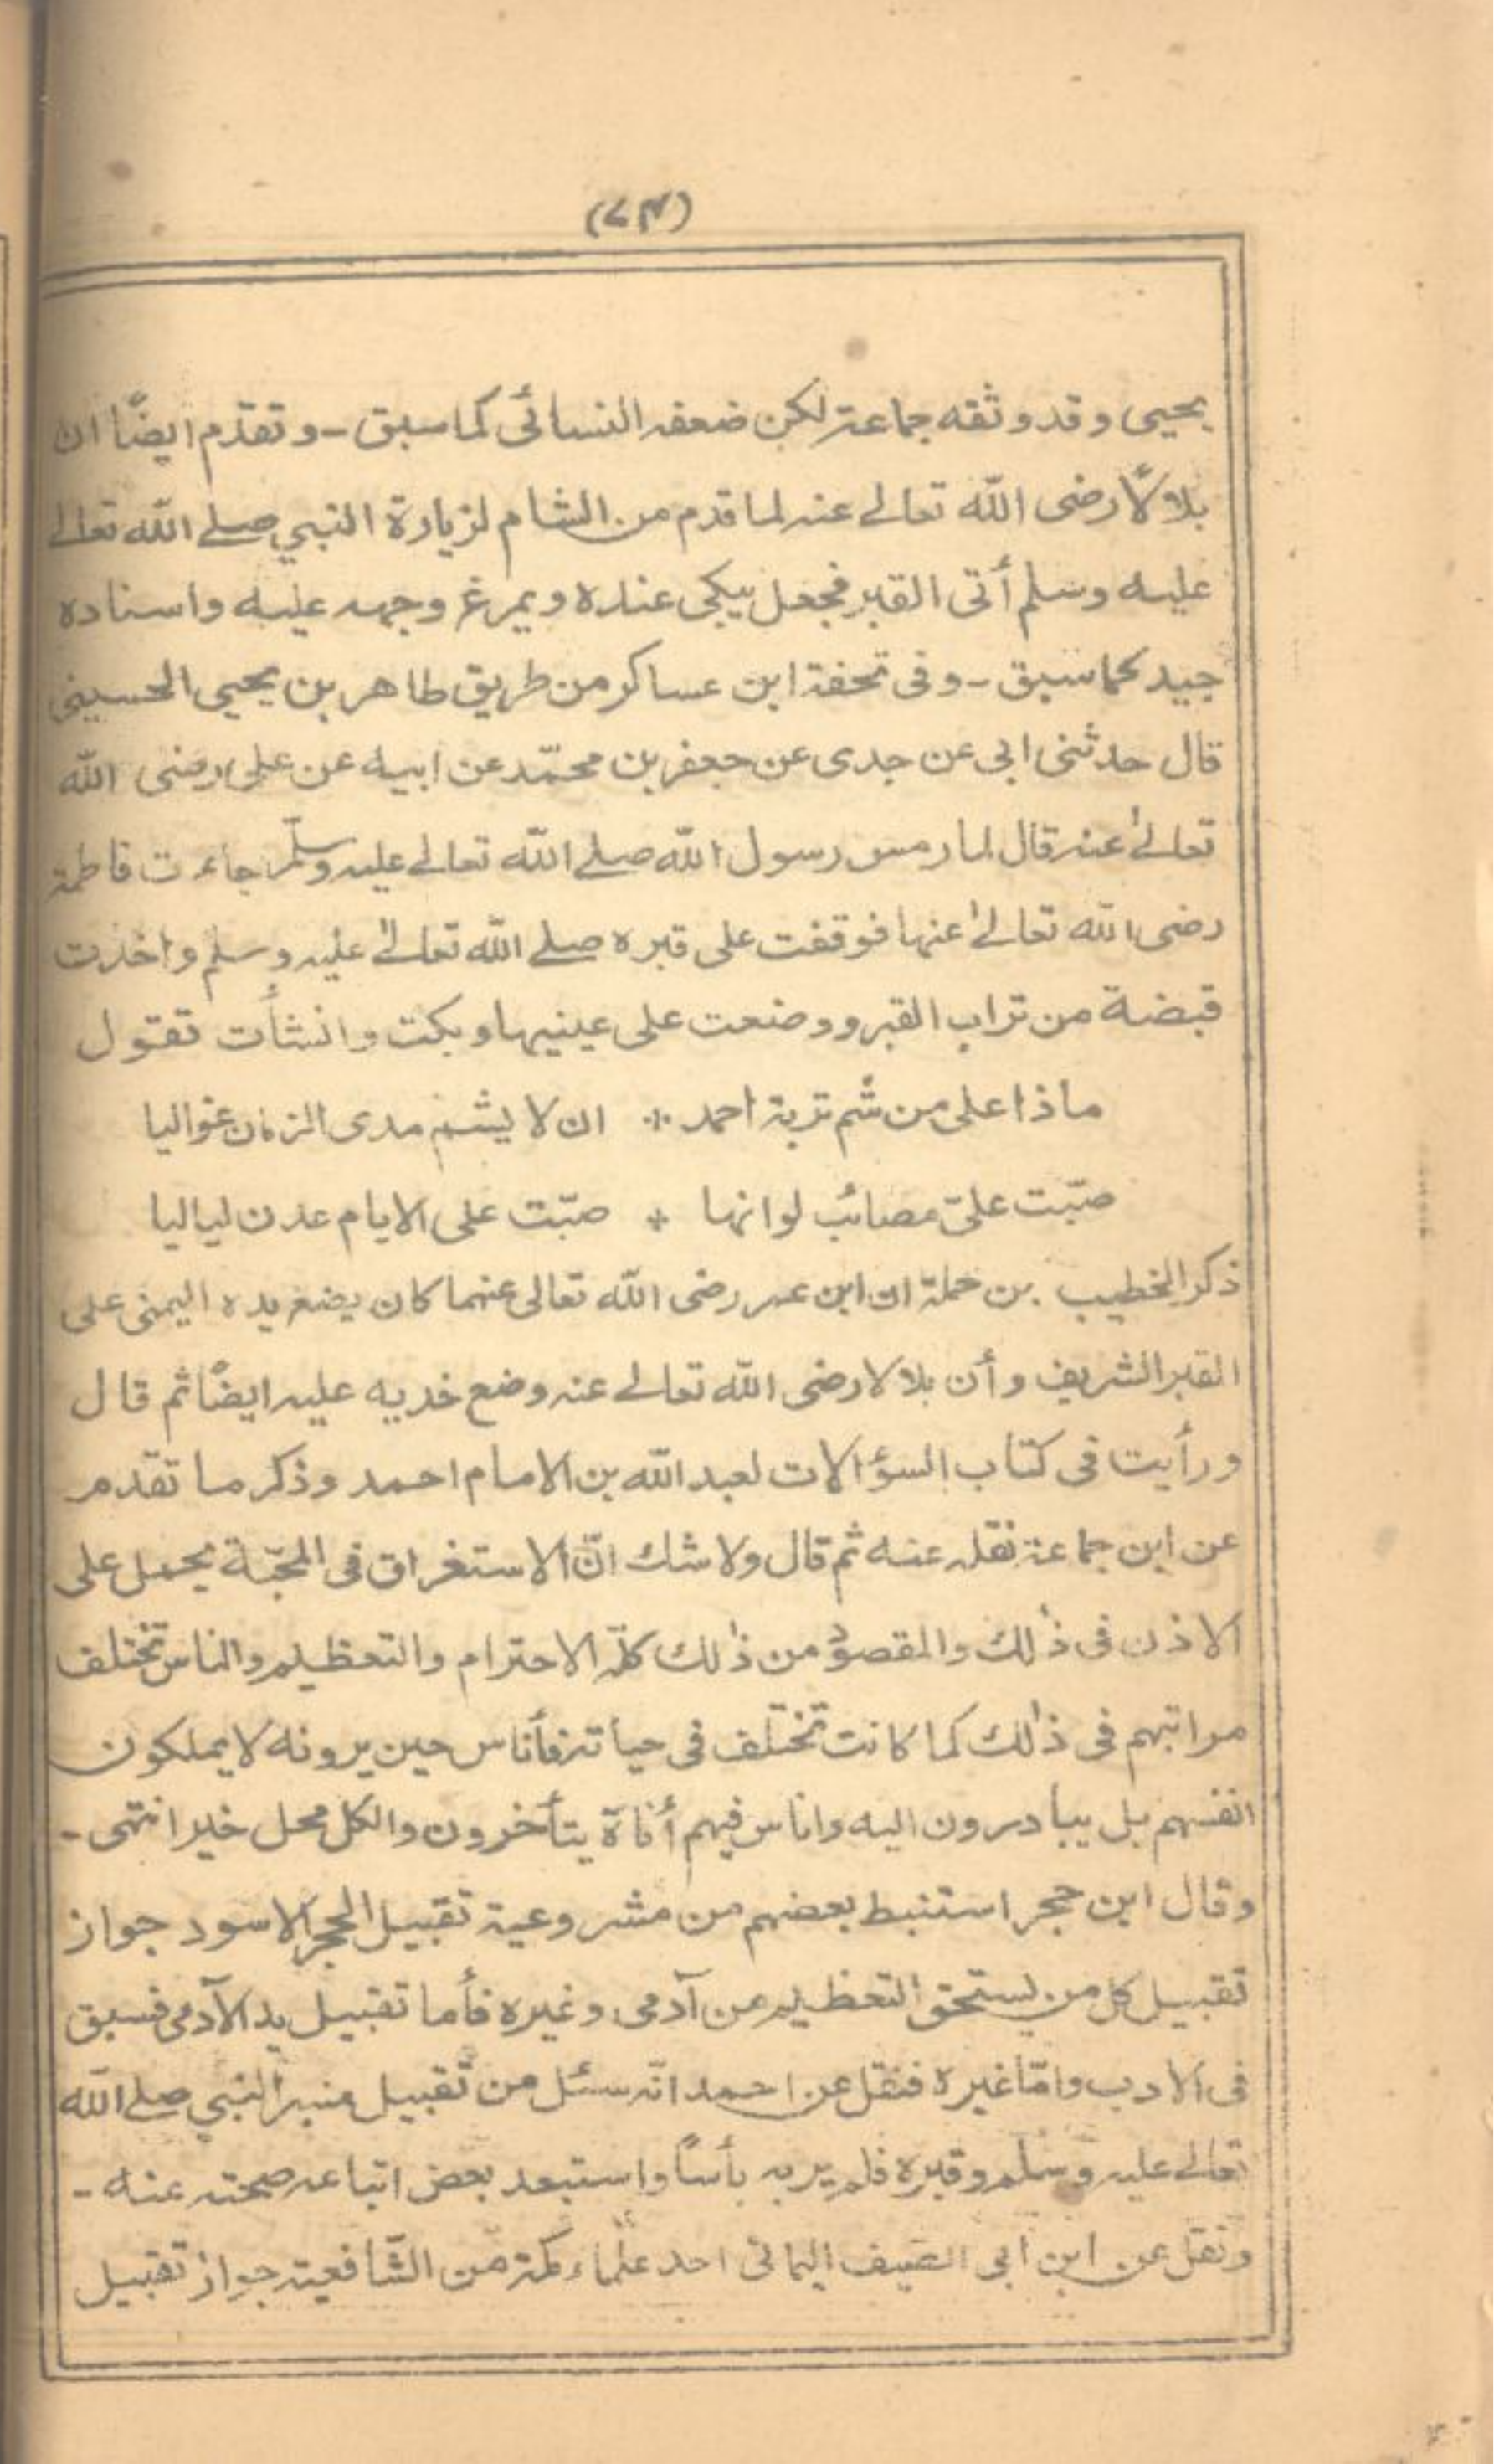 (٧٣)
يحيى وقد وثقه جماعة لكن ضعفه النسائى كما سبق - وتقدّم ايضًا ان
بلالًا رضى الله تعالے عنه لما قدم من الشام لزيارة النبي صلے الله تعالے
عليه وسلم أتى القبر فجعل يبكى عنده ويمرغ وجهه عليه واسناده
جيد كما سبق - وفى تحفة ابن عساكر من طريق طاهر بن يحيى الحسينى
قال حدثنى ابى عن جدى عن جعفر بن محمّد عن ابيه عن على رضى الله
تعالےٰ عنه قال لما رمس رسول الله صلے الله تعالے عليه وسلّم جاءت فاطمة
رضى الله تعالےٰ عنها فوقفت على قبره صلے الله تعالےٰ عليه وسلم واخذت
قبضة من تراب القبر ووضعت على عينيها وبكت وانشأت تقول
ماذا على من شم تربة احمد * ان لا يشم مدى الزمان غواليا
صبّت علىّ مصائب لو انها * صبّت على الايام عدن لياليا
ذكر الخطيب بن حملة ان ابن عمر رضى الله تعالى عنهما كان يضع يده اليمنى على
القبر الشريف وأن بلالا رضى الله تعالے عنه وضع خديه عليه ايضًا ثم قال
ورأيت فى كتاب السؤالات لعبد الله بن الامام احمد وذكر ما تقدم
عن ابن جماعة نقله عنه ثم قال ولا شك انّ الاستغراق فى المحبّة يحمل على
الاذن فى ذٰلك والمقصود من ذٰلك كلّه الاحترام والتعظيم والناس تختلف
مراتبهم فى ذٰلك كما كانت تختلف فى حياته فأناس حين يرونه لا يملكون
انفسهم بل يبادرون اليه واناس فيهم أناة يتأخرون والكل محل خير انتهى -
وقال ابن حجر استنبط بعضهم من مشروعية تقبيل الحجر الاسود جواز
تقبيل كل من يستحق التعظيم من آدمى وغيره فأما تقبيل يد الآدمى فسبق
فى الادب وامّا غيره فنقل عن احمد انّه سئل من تقبيل منبر النبي صلے الله
تعالے عليه وسلم وقبره فلم ير به بأسًا واستبعد بعض اتباعه صحته عنه -
ونقل عن ابن ابى الصيف اليمانى احد علماء مكة من الشّافعية جواز تقبيل